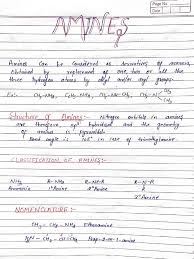 Page No.
Date
AMINES
Amines can be considered as derivatives of ammonia,
obtained by replacement of one two or all the
three hydrogen atoms by alkyl and/or aryl groups.
Ex:- CH3-NH2, C2H5-NH2, CH3-NH-CH3, CH3-N CH3 CH3
Structure of Amines:- Nitrogen orbitals in amines
are therefore, sp3 hybridised and the geometry
of amines is pyramidal.
Bond angle is 108° in case of trimethylamine
CLASSIFICATION OF AMINES:-
NH3 R-NH2 R-N-R R-N-R
Ammonia 1° Amine 2° Amine R
3° Amine
NOMENCLATURE:-
CH3 - CH2 - NH2 Ethanamine
Prop-2-en-1-amine